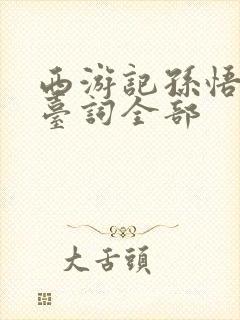 西游記孫悟
臺詞全部
大舌頭